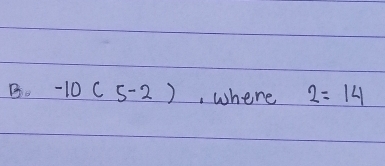 B. -10 ( 5-2 ) , where 2= 14